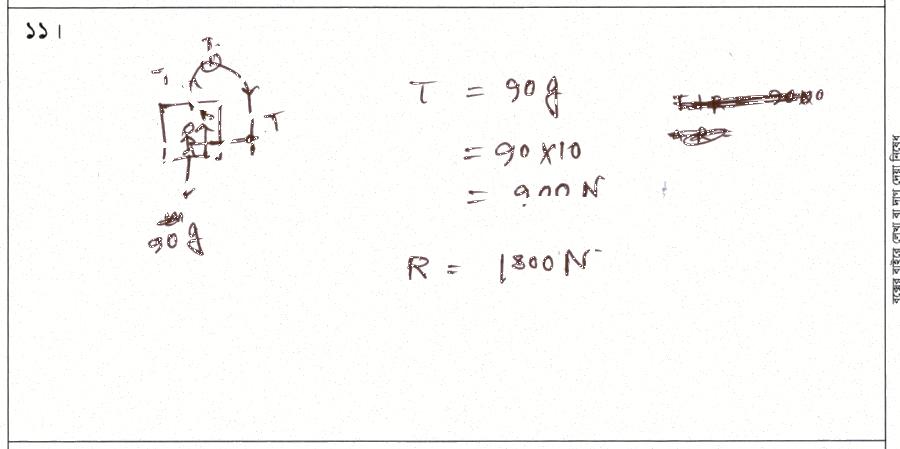 ১১।
T
T
T
90g
T = 90g
= 90 X 10
= 900 N
R = 1800 N
বক্সের বাইরে লেখা বা দাগ দেয়া নিষেধ